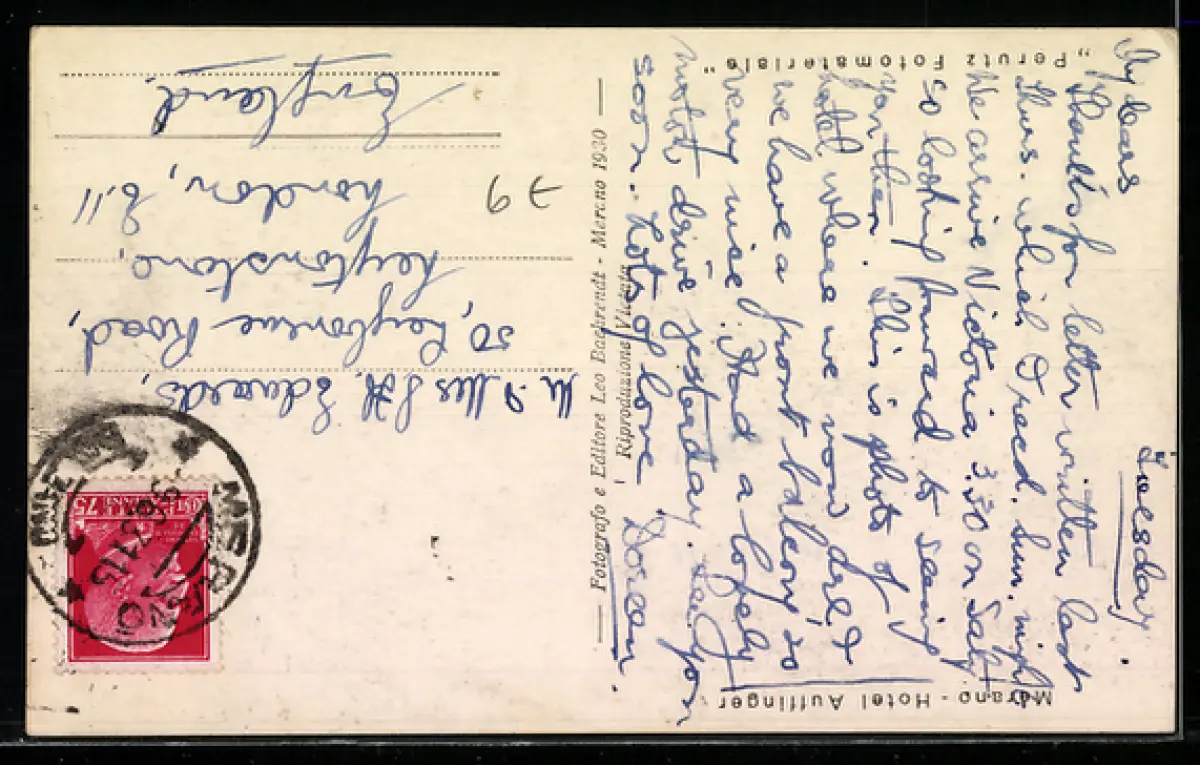 Tuesday.
My Dears
Thanks for letter written last
Thurs. which I recd. Sun. night
We arrive Victoria 3.30 on Sat
So looking forward to seeing
you then. This is photo of
hotel where we now are, &
we have a front balcony, so
very nice. Had a lovely
motor drive yesterday. See you
soon. Lots of love, Doreen.
Merano - Hotel Auffinger
„Perutz Fotomateriale"
— Fotografo e Editore Leo Baehrendt - Merano 1930 —
Riproduzione Vietata
79
MERANO
75
Mr & Mrs S. H. Edwards,
50, Leybourne Road,
Leytonstone,
London, E.11
England,